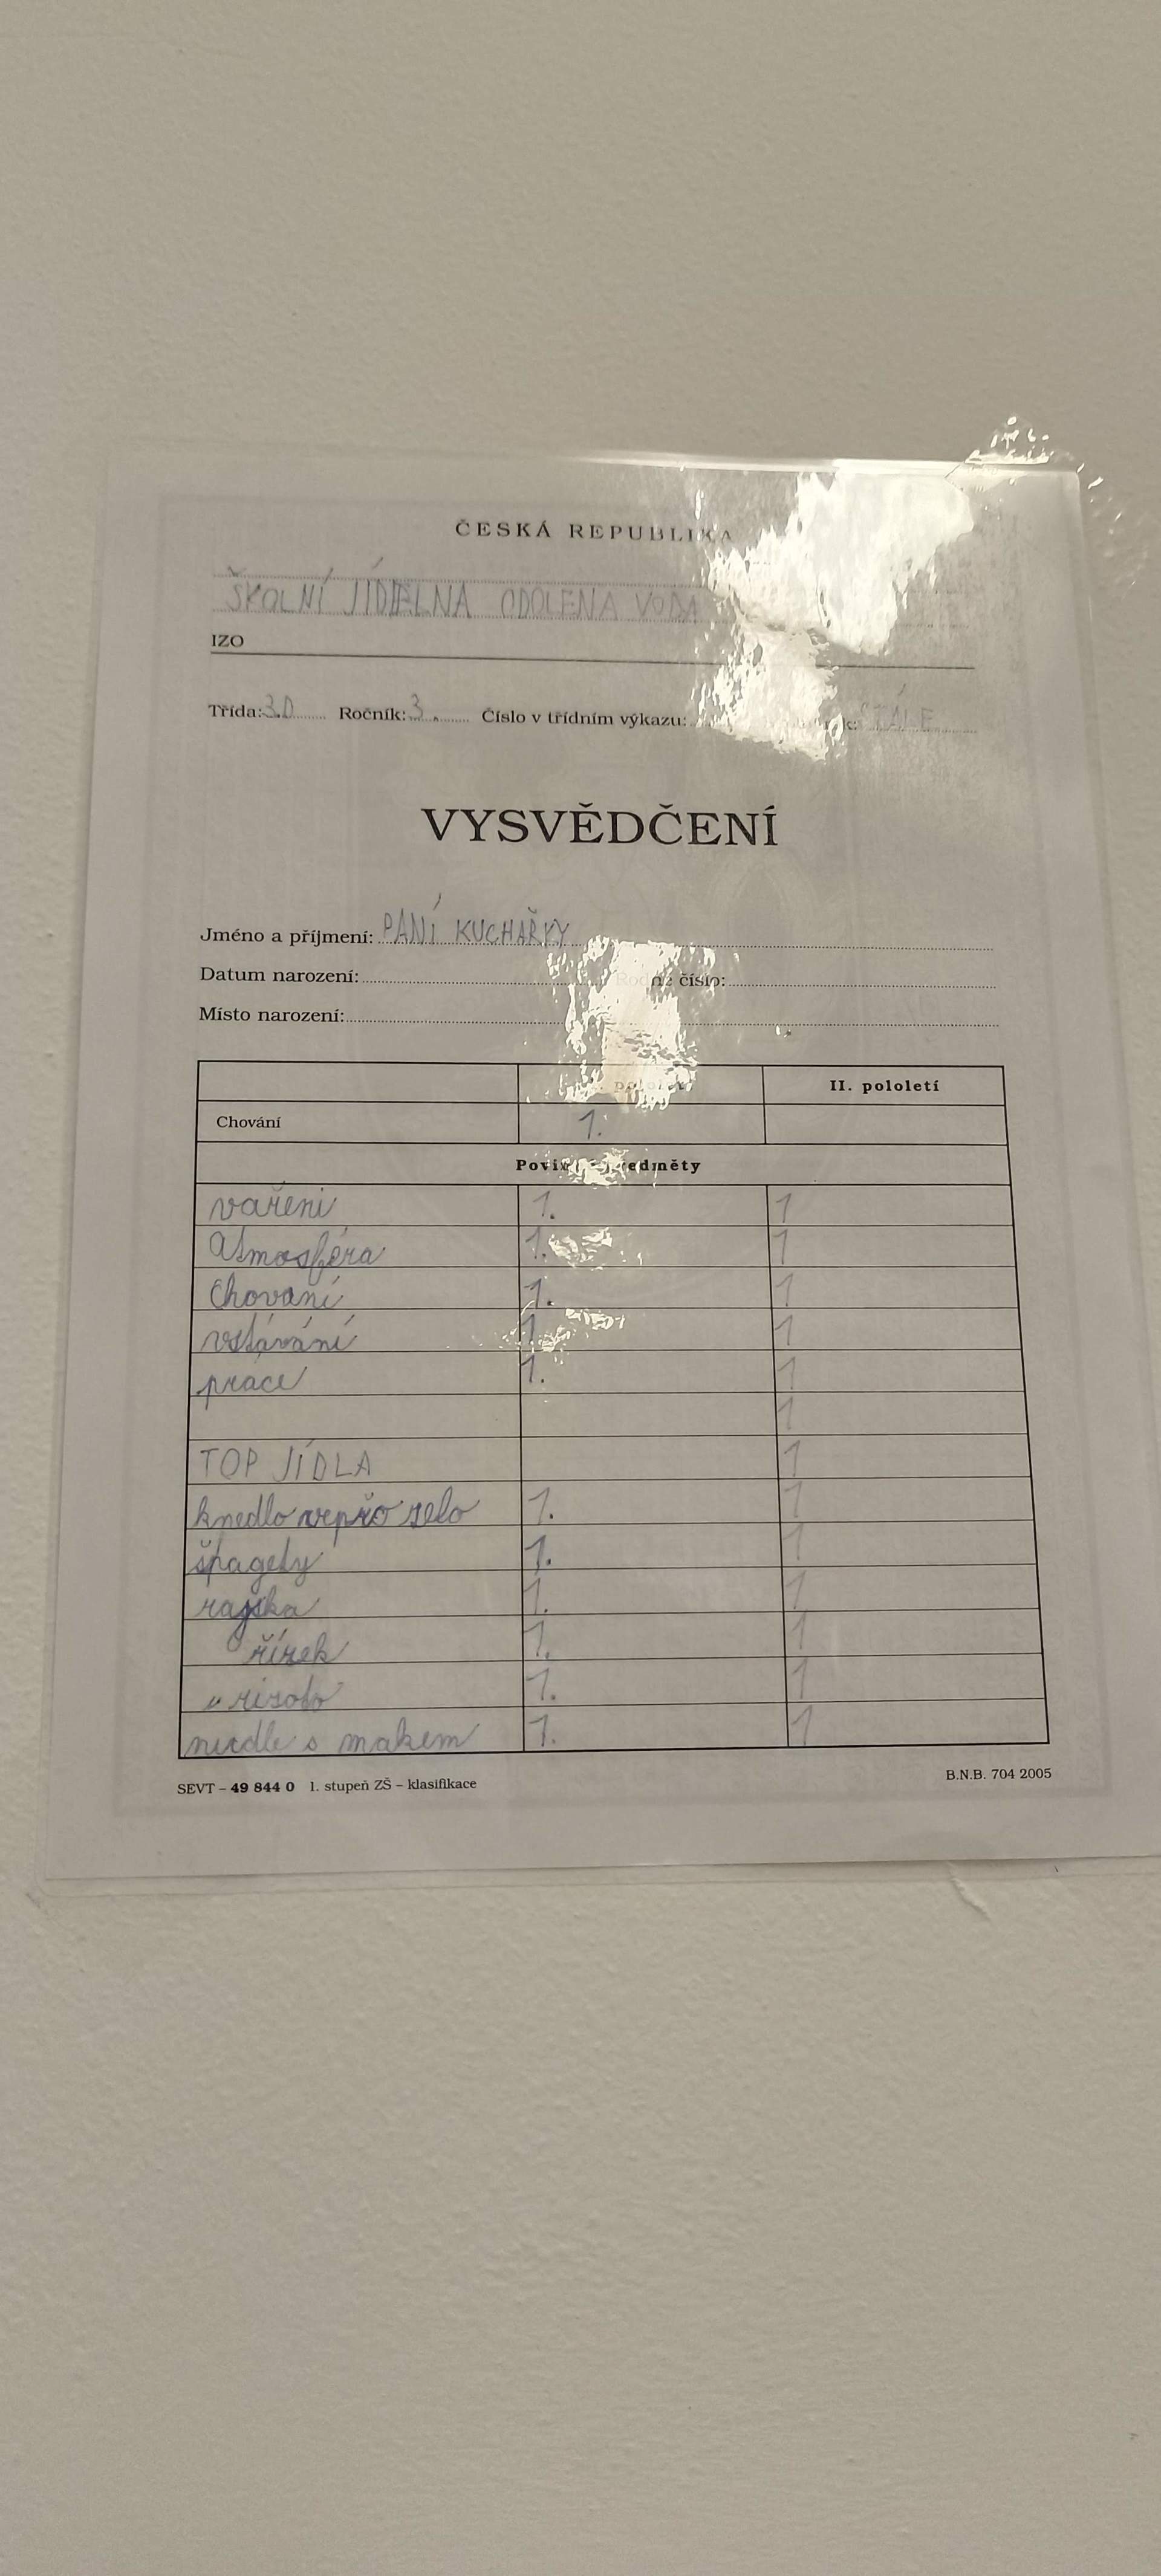 ČESKÁ REPUBLIKA
ŠKOLNÍ JÍDELNA ODOLENA VODA
IZO
Třída: 3.D Ročník: 3. Číslo v třídním výkazu: STÁLE
VYSVĚDČENÍ
Jméno a příjmení: PANÍ KUCHAŘKY
Datum narození: Rodné číslo:
Místo narození:
pololetí II. pololetí
Chování 1.
Povinné předměty
vařeni 1. 1
Atmosféra 1. 1
Chovaní 1. 1
vstávání 1. 1
prace 1. 1
1
TOP JÍDLA 1
knedlo vepřo zelo 1. 1
špagety 1. 1
rajska 1. 1
řízek 1. 1
rizoto 1. 1
nudle s makem 1. 1
SEVT – 49 844 0 1. stupeň ZŠ – klasifikace B.N.B. 704 2005